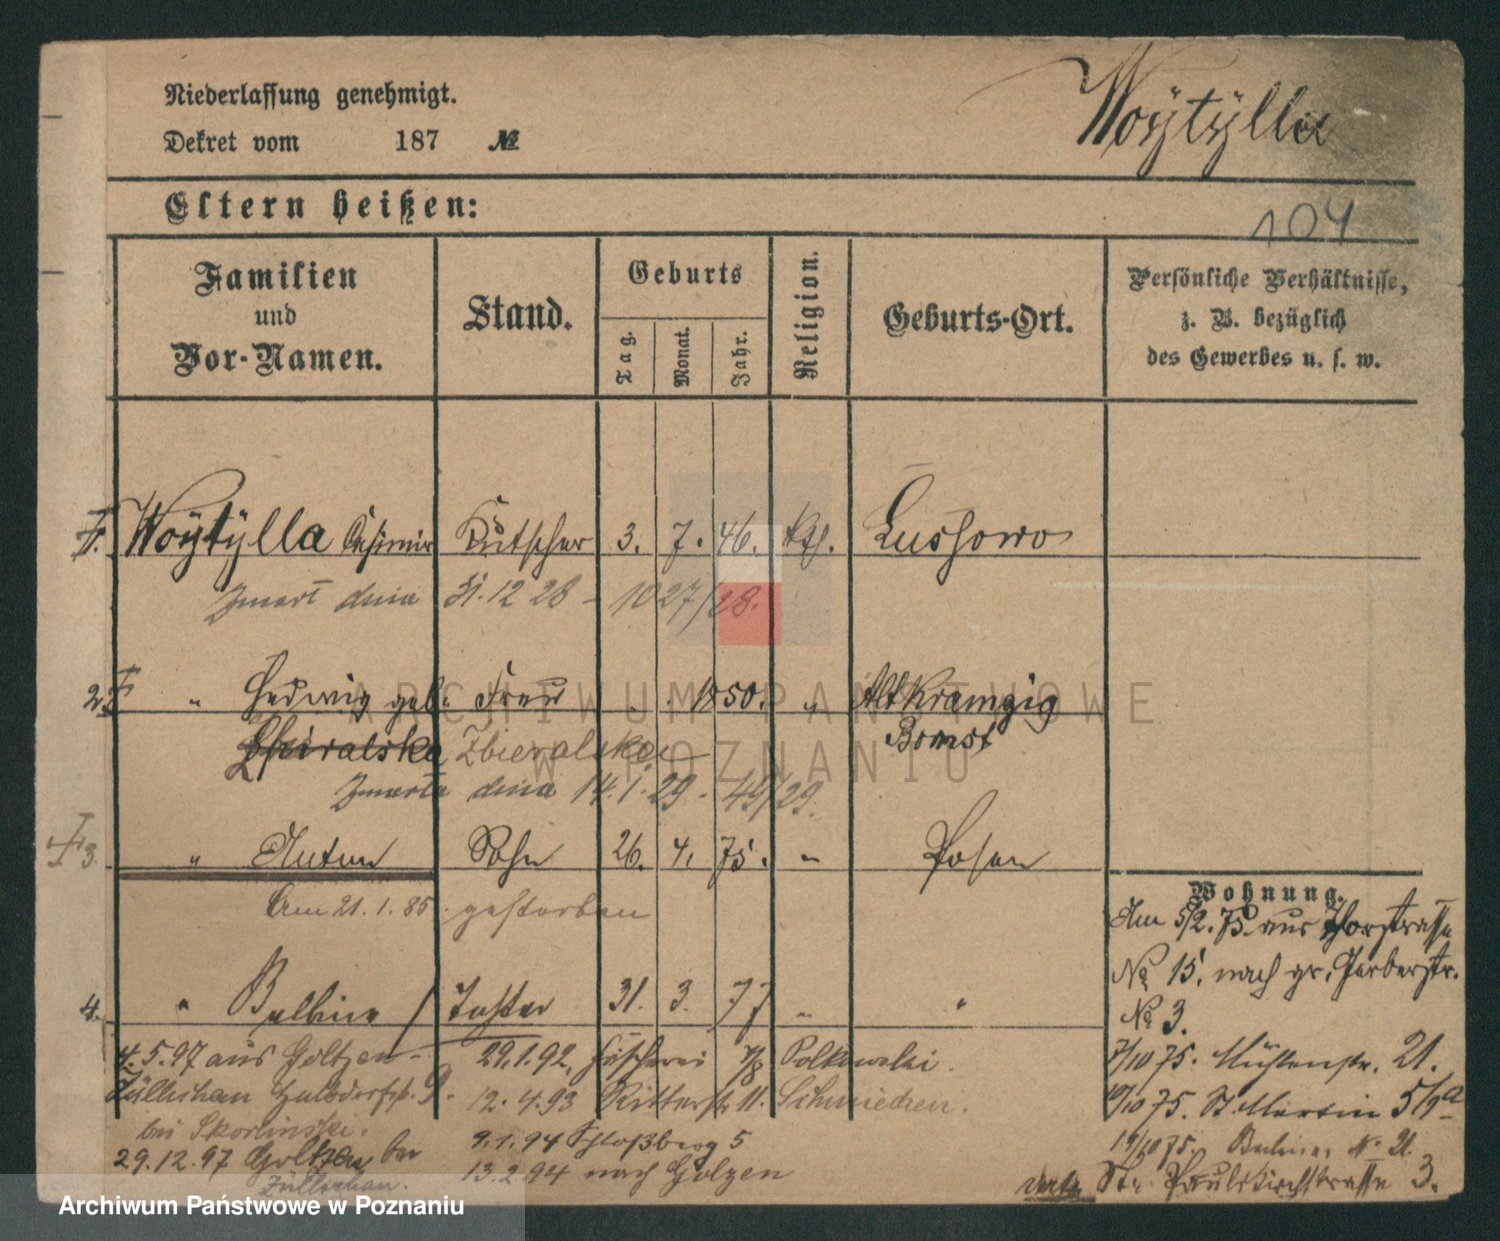 Niederlassung genehmigt.
Woÿtÿlla
Dekret vom 187 №
Eltern heißen:
104
Familien und Vor-Namen.
Stand.
Geburts
Tag.
Monat.
Jahr.
Religion.
Geburts-Ort.
Persönliche Verhältnisse,
z. B. bezüglich
des Gewerbes u. s. w.
Woÿtÿlla Casimir Kutscher 3. 7. 46. Kth. Lussowo
Zmarł dnia 31.12 28 - 1027/28.
2 " Hedwig geb. Frau 1850. " Alt Kramzig
Zbieralska Bomst
Zmarła dnia 14.1.29 - 49/29.
3. " Anton Sohn 26. 4. 75. " Posen
Am 21.1.85. gestorben
4. " Balbina Tochter 31. 3. 77 " "
4.5.97 aus Goltzen -
Züllichau
bei Skorlinski.
29.12.97 Goltzen bei
Züllichau.
29.1.92. Fischerei 7/8 Polkowski.
12.4.93 Ritterstr. 11. Schmieden.
9.1.94 Schloßberg 5
13.2.94 nach Golzen
Wohnung.
Am 5/2. 75. aus Thorstrasse
№ 15. nach gr. Gerberstr.
№ 3.
7/10 75. Mühlenstr. 21.
10/10 75. St. Martin 5/9a
19/10 75. № 21.
St. Paulikirchstrasse 3.
ARCHIWUM PAŃSTWOWE
W POZNANIU
Archiwum Państwowe w Poznaniu